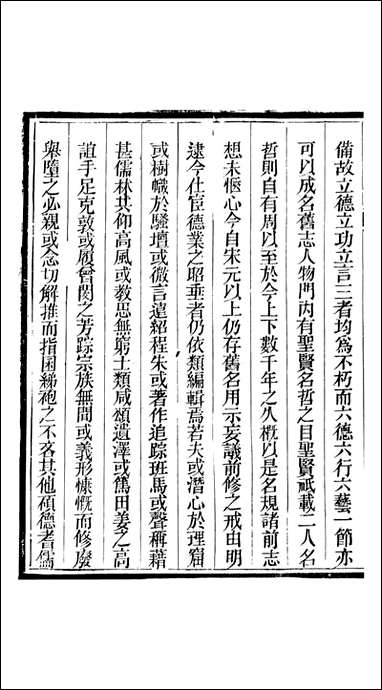 備故立德立功立言三者均為不朽而六德六行六藝一節亦
可以成名舊志人物門內有聖賢名哲之目聖賢祇載二人名
哲則自有周以至於今上下數千年之久概以是名規諸前志
想未愜心今自宋元以上仍存舊名用示妄議前修之戒由明
逮今仕宦德業之昭垂者仍依類編輯焉若夫或潛心於理窟
或樹幟於騷壇或微言遠紹程朱或著作追踪班馬或聲稱藉
甚儒林共仰高風或教思無窮士類咸頌遺澤或篤田姜之高
誼手足克敦或履曾閔之芳踪宗族無間或義形慷慨而修廢
舉墜之必親或念切解推而指囷綈袍之不吝其他碩德耆儒